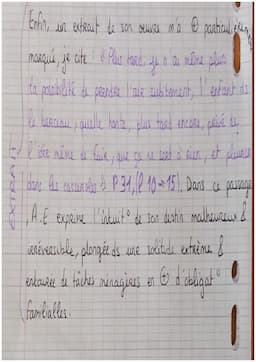 Enfin, un extrait de son oeuvre m'a ⊕ particulièrem
marqué, je cite : « Plus tard, je n'ai même plus
la possibilité de prendre l'air subitement, l'enfant ds
le berceau, quelle honte, plus tard encore, privé de
l'idée même de fuir, que ça ne sert à rien, et pleurer
dans les casseroles » P 31, (l 10 → 15). Dans ce passage
, A.E exprime l'intuit° de son destin malheureux &
irréversible, plongée ds une solitude extrême &
entourée de tâches ménagères en ⊕ d'obligat°
familialles.
EXTRAIT